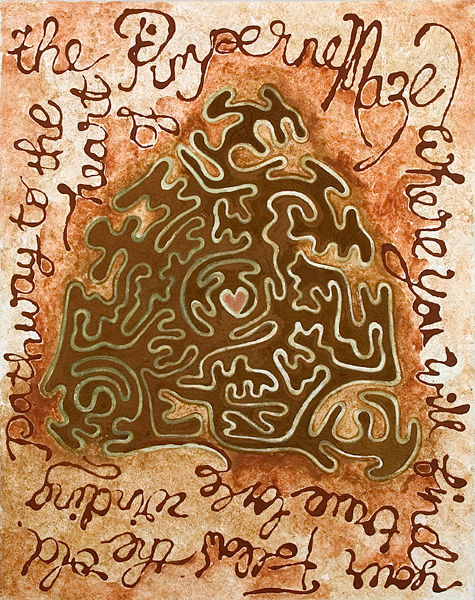 Follow the old
winding
pathway to the
heart
of
the Pimperne Maze
where you will find
your
true love